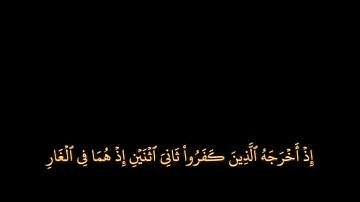 إِذۡ أَخۡرَجَهُ ٱلَّذِينَ كَفَرُواْ ثَانِيَ ٱثۡنَيۡنِ إِذۡ هُمَا فِي ٱلۡغَارِ